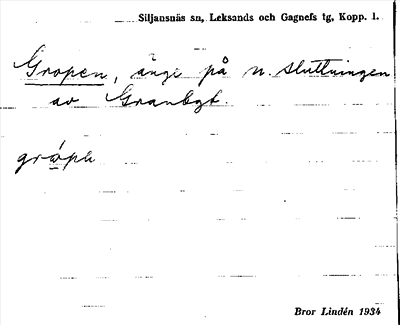 Siljansnäs sn, Leksands och Gagnefs tg, Kopp. l.
Gropen, änge på n. sluttningen
av Granbgt.
Bror Lindén 1934